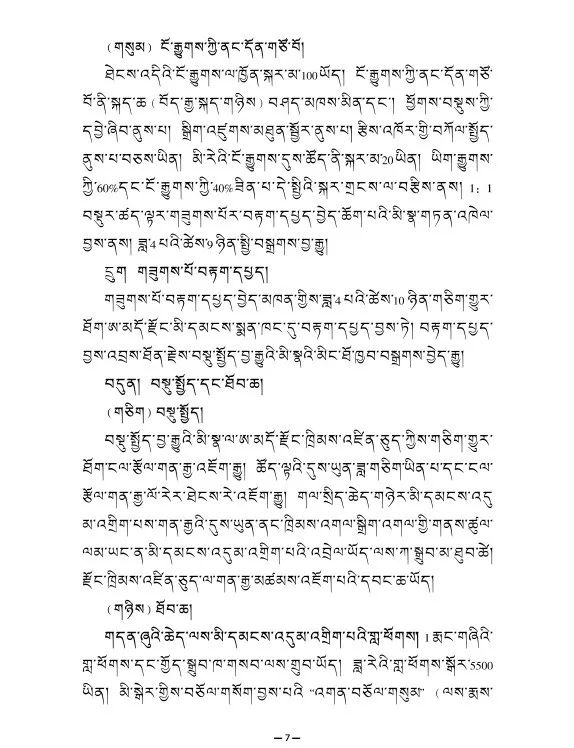 (གསུམ) ངོ་རྒྱུགས་ཀྱི་ནང་དོན་གཙོ་བོ།
ཐེངས་འདིའི་ངོ་རྒྱུགས་ལ་ཁྱོན་སྐར་མ་100ཡོད། ངོ་རྒྱུགས་ཀྱི་ནང་དོན་གཙོ་
བོ་ནི་སྐད་ཆ (བོད་རྒྱ་སྐད་གཉིས) བཤད་མཁས་མིན་དང་། ཕྱོགས་བསྡུས་ཀྱི་
དབྱེ་ཞིབ་ནུས་པ། སྒྲིག་འཛུགས་མཐུན་སྦྱོར་ནུས་པ། རྩིས་འཁོར་གྱི་བཀོལ་སྤྱོད་
ནུས་པ་བཅས་ཡིན། མི་རེའི་ངོ་རྒྱུགས་དུས་ཚོད་ནི་སྐར་མ་20ཡིན། ཡིག་རྒྱུགས་
ཀྱི་60%དང་ངོ་རྒྱུགས་ཀྱི་40%ཟིན་པ་དེ་སྤྱིའི་སྐར་གྲངས་ལ་བརྩིས་ནས། 1：1
བསྡུར་ཚད་ལྟར་གཟུགས་པོར་བརྟག་དཔྱད་བྱེད་ཆོག་པའི་མི་སྣ་གཏན་འཁེལ་
བྱས་ནས། ཟླ་4པའི་ཚེས་9ཉིན་སྤྱི་བསྒྲགས་བྱ་རྒྱུ།
དྲུག གཟུགས་པོ་བརྟག་དཔྱད།
གཟུགས་པོ་བརྟག་དཔྱད་བྱེད་མཁན་གྱིས་ཟླ་4པའི་ཚེས་10ཉིན་གཅིག་གྱུར་
ཐོག་ཨ་མདོ་རྫོང་མི་དམངས་སྨན་ཁང་དུ་བརྟག་དཔྱད་བྱས་ཏེ། བརྟག་དཔྱད་
བྱས་འབྲས་ཐོན་རྗེས་བསྡུ་སྤྱོད་བྱ་རྒྱུའི་མི་སྣའི་མིང་ཐོ་ཁྱབ་བསྒྲགས་བྱེད་རྒྱུ།
བདུན། བསྡུ་སྤྱོད་དང་ཐོབ་ཆ།
(གཅིག) བསྡུ་སྤྱོད།
བསྡུ་སྤྱོད་བྱ་རྒྱུའི་མི་སྣ་ལ་ཨ་མདོ་རྫོང་ཁྲིམས་འཛིན་ཅུད་ཀྱིས་གཅིག་གྱུར་
ཐོག་ངལ་རྩོལ་གན་རྒྱ་འཇོག་རྒྱུ། ཚོད་ལྟའི་དུས་ཡུན་ཟླ་གཅིག་ཡིན་པ་དང་ངལ་
རྩོལ་གན་རྒྱ་ལོ་རེར་ཐེངས་རེ་འཇོག་རྒྱུ། གལ་སྲིད་ཆེད་གཉེར་མི་དམངས་འདུ
མ་འགྲིག་པས་གན་རྒྱའི་དུས་ཡུན་ནང་ཁྲིམས་འགལ་སྒྲིག་འགལ་གྱི་གནས་ཚུལ་
ལམ་ཡང་ན་མི་དམངས་འདུམ་འགྲིག་པའི་འབྲེལ་ཡོད་ལས་ཀ་སྒྲུབ་མ་ཐུབ་ཚེ།
རྫོང་ཁྲིམས་འཛིན་ཅུད་ལ་གན་རྒྱ་མཚམས་འཇོག་པའི་དབང་ཆ་ཡོད།
(གཉིས) ཐོབ་ཆ།
གདན་ཞུའི་ཆེད་ལས་མི་དམངས་འདུམ་འགྲིག་པའི་གླ་ཕོགས། 1རྨང་གཞིའི་
གླ་ཕོགས་དང་གྱོད་སྒྲུབ་ཁ་གསབ་ལས་གྲུབ་ཡོད། ཟླ་རེའི་གླ་ཕོགས་སྒོར་5500
ཡིན། མི་སྒེར་གྱིས་བཅོལ་གསོག་བྱས་པའི “འགན་བཅོལ་གསུམ” (ལས་རྨས་
－7－